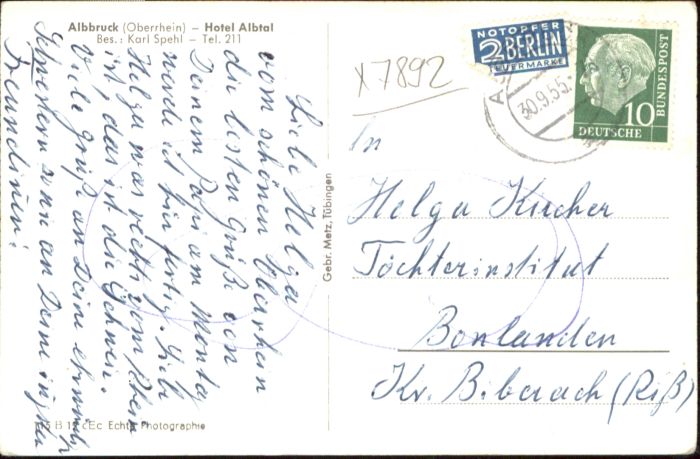 Albbruck (Oberrhein) – Hotel Albtal
Bes.: Karl Spehl – Tel. 211
NOTOPFER
2 BERLIN
STEUERMARKE
30.9.55.
10
DEUTSCHE
BUNDESPOST
x 7892
Liebe Helga
vom schönen Oberrhein
die besten Grüße von
Deinem Papi am Montag
werde ich hier fertig. Liebe
Helga was rechts vom Rhein
ist, das ist die Schweiz.
Viele Grüße an Deine
Schwestern und an Deine
Freundinnen!
In
Helga Kircher
Töchterinstitut
Bonlanden
Kr. Biberach (Riß)
Gebr. Metz, Tübingen
Echte Photographie